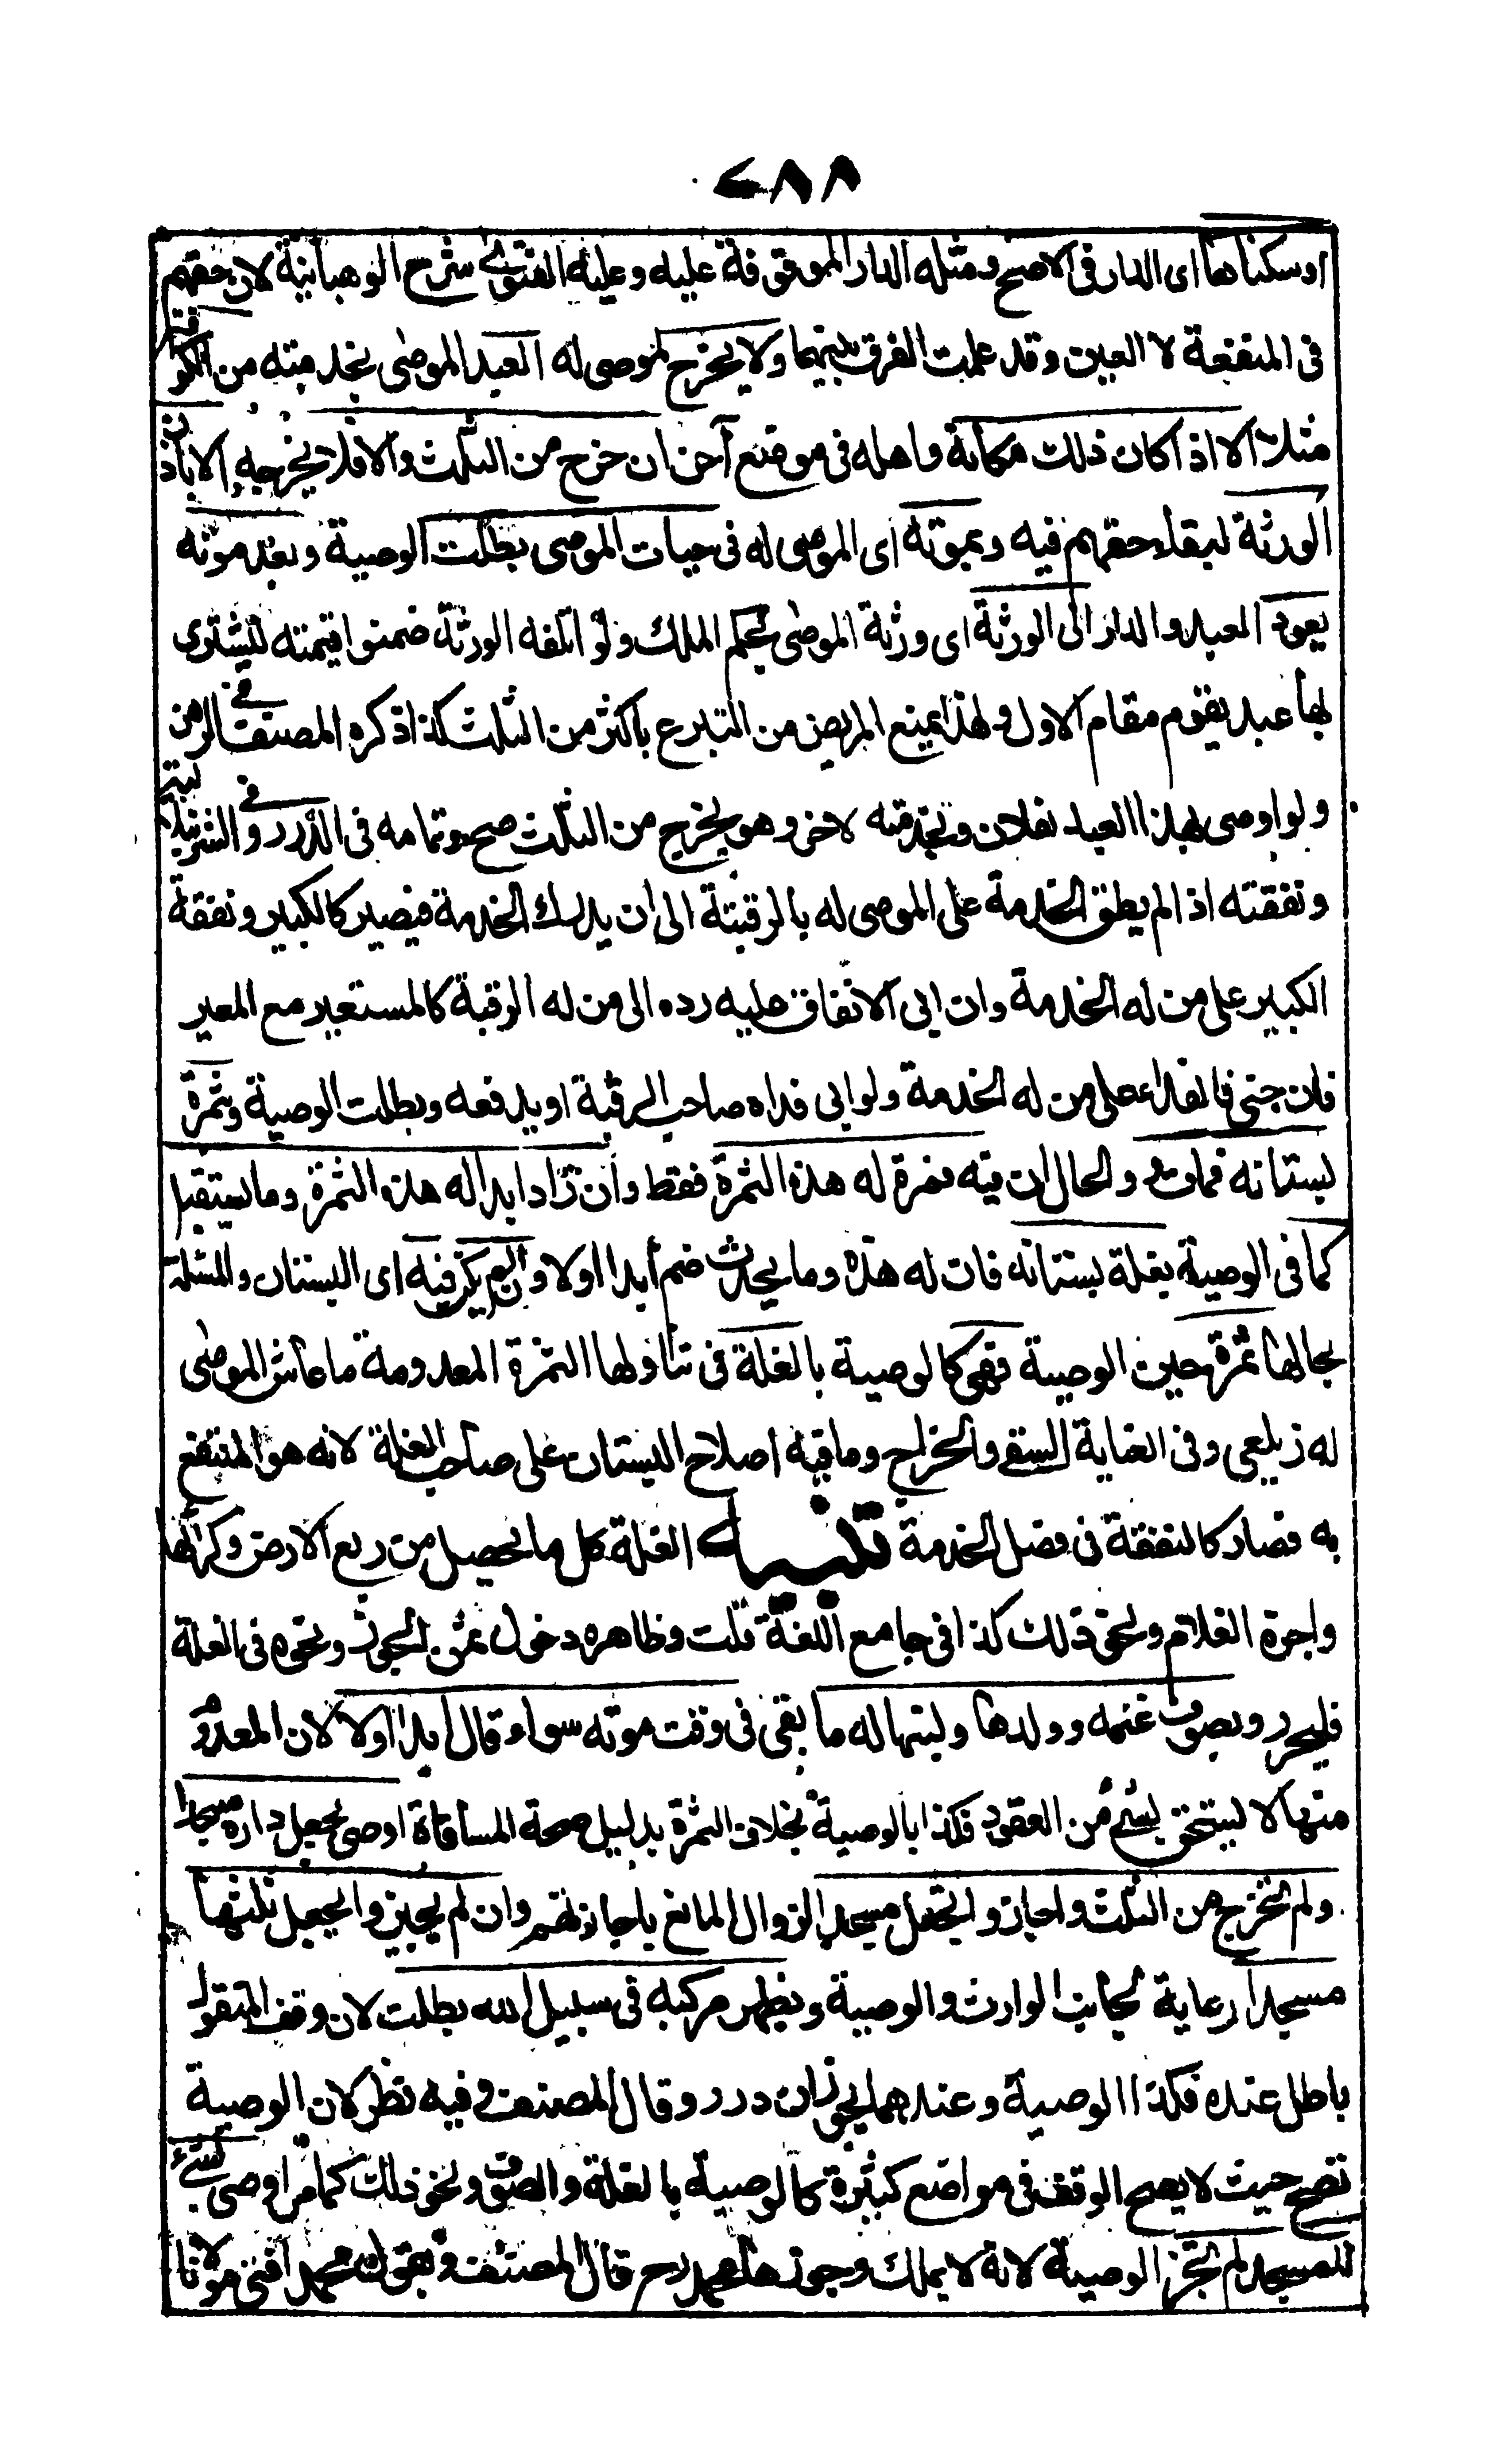 ٧٨٨
او سكناها اى الدار فى الاصح ومثله الدار الموقوفة عليه وعليه الفتوى شرح الوهبانية لان حقهم
فى المنفعة لا العين وقد علمت الفرق بينهما ولا يخرج لموصى له العبد الموصى بخدمته من الكوفة
مثلا الا اذا كان ذلك مكانه واهله فى موضع آخر ان خرج من الثلث والا فلا يخرجه الا باذن
الورثة لبقاء حقهم فيه وبموته اى الموصى له فى حيات الموصى بطلت الوصية وبعد موته
يعود العبد والدار الى الورثة اى ورثة الموصى بحكم الملك ولو اتلفه الورثة ضمنوا قيمته ليشترى
بها عبد يقوم مقام الاول ولهذا يمنع المريض من التبرع باكثر من الثلث كذا ذكره المصنف فى الرهن
ولو اوصى بهذا العبد لفلان وبخدمته لاخر وهو يخرج من الثلث صح وتمامه فى الدرر وفى الشرنبلالية
ونفقته اذا لم يطق الخدمة على الموصى له بالرقبة الى ان يدرك الخدمة فيصير كالكبير ونفقة
الكبير على من له الخدمة وان ابى الانفاق عليه رده الى من له الرقبة كالمستعير مع المعير
فان جنى فالفداء على من له الخدمة ولو ابى فداه صاحب الرقبة او يدفعه وبطلت الوصية وبثمرة
بستانه فمات والحال ان فيه ثمرة له هذه الثمرة فقط وان زاد ابدا له هذه الثمرة وما يستقبل
كما فى الوصية بغلة بستانه فان له هذه وما يحدث ضم ابدا اولا وان لم يكن فيه اى البستان والمسئلة
بحالها ثمرة حين الوصية فهى كالوصية بالغلة فى تناولها الثمرة المعدومة ما عاش الموصى
له زيلعى وفى العناية السقى والخراج وما فيه اصلاح البستان على صاحب الغلة لانه هو المنتفع
به فصار كالنفقة فى فصل الخدمة تنبيه الغلة كل ما يحصل من ريع الارض وكرائها
واجرة الغلام ونحو ذلك كذا فى جامع اللغة قلت وظاهره دخول ثمن الحور ونحوه فى الغلة
فليحرر وبصوف غنمه وولدها ولبنها له ما بقى فى وقت موته سواء قال ابدا اولا لان المعدوم
منها لا يستحق بشئ من العقود فكذا بالوصية بخلاف الثمرة بدليل صحة المساقاة اوصى بجعل داره مسجدا
ولم تخرج من الثلث واجازوا تجعل مسجدا لزوال المانع باجازتهم وان لم يجيزوا يجعل ثلثها
مسجدا رعاية لجانب الوارث والوصية وبظهر مركبه فى سبيل الله بطلت لان وقف المنقول
باطل عنده فكذا الوصية وعندهما يجوزان درر وقال المصنف وفيه نظر لان الوصية
تصح حيث لا يصح الوقف فى مواضع كثيرة كالوصية بالغلة والصوف ونحو ذلك كما مر اوصى بشئ
للمسجد لم تجز الوصية لانه لا يملك وجوزها محمد رح قال المصنف وبقول محمد افتى مولانا